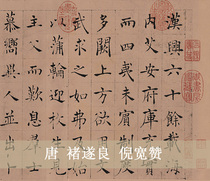 漢興六十餘載海
内艾安府庫充
而四夷未賓制
多闕上方欲
武求之如弗
以蒲輪迎
父而歎息士
慕嚮異人並出卜
唐 褚遂良 倪宽赞